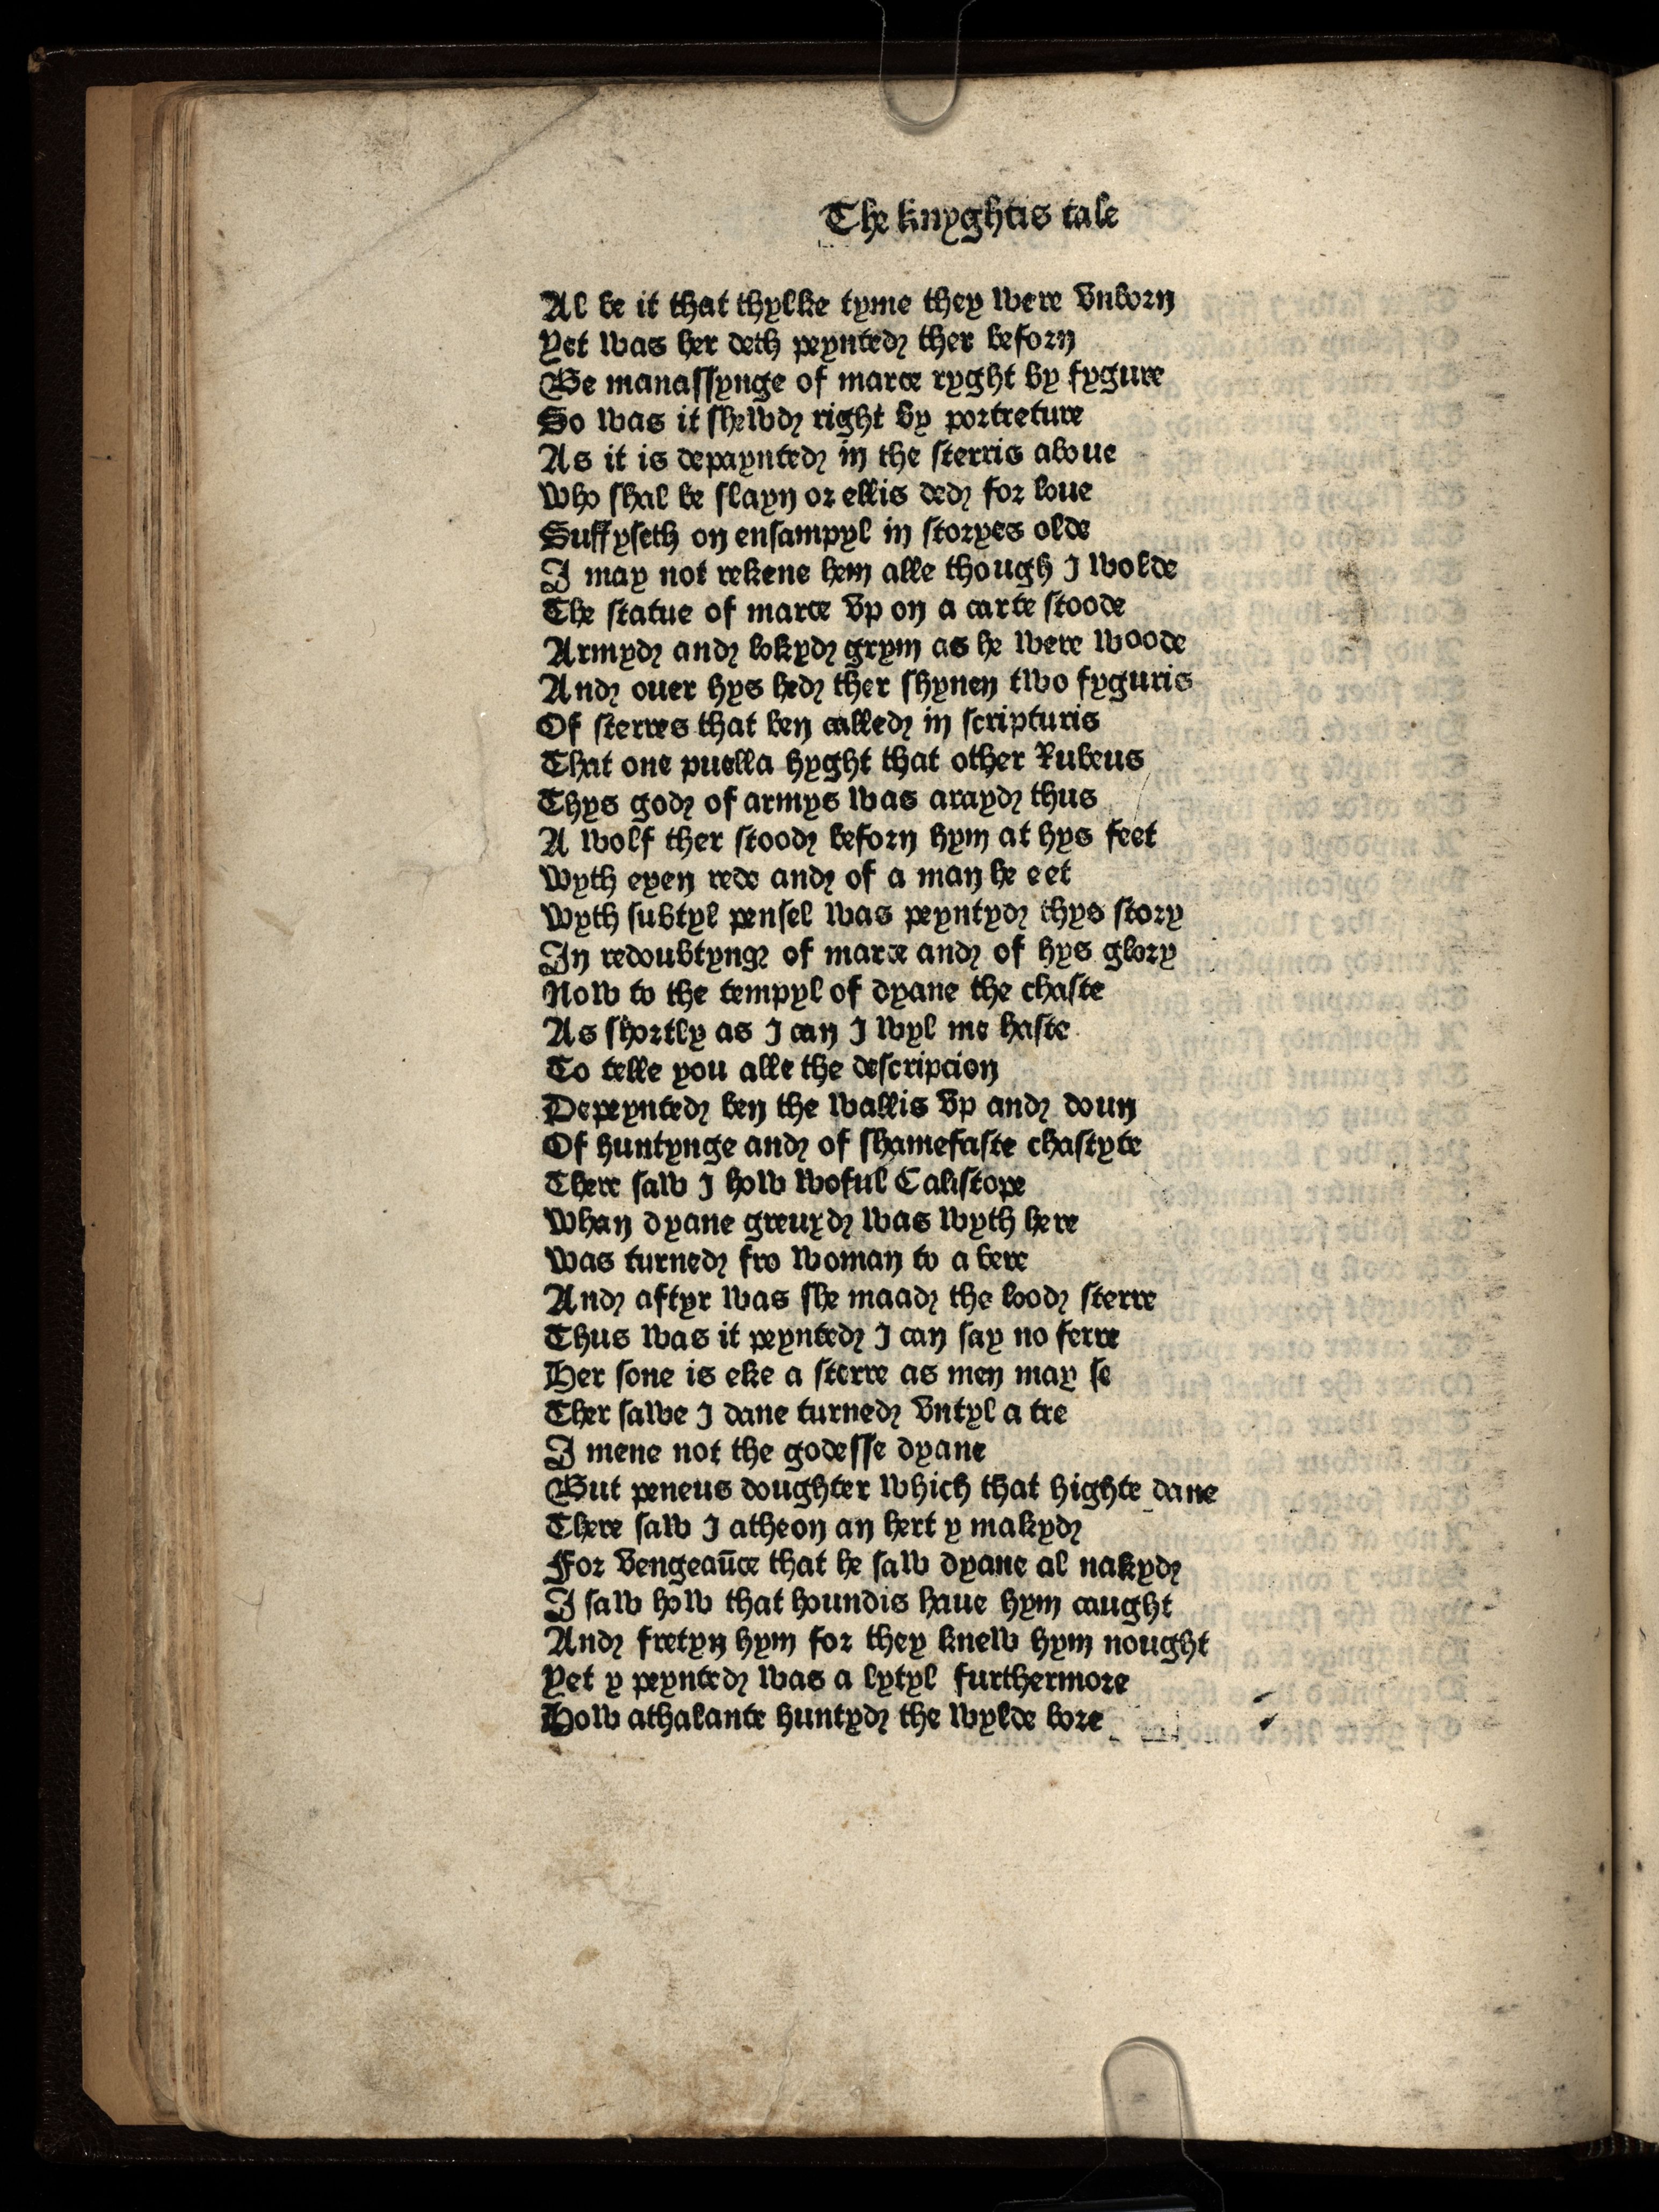 The knyghtis tale
Al be it that thylke tyme they were vnborn
Yet was her deth peynted ther beforn
Be manassynge of marce ryght by fygure
So was it shewd right by portreture
As it is depaynted in the sterris aboue
Who shal be slayn or ellis ded for loue
Suffyseth on ensampyl in storyes olde
I may not rekene hem alle though I wolde
The statue of marce vp on a carte stoode
Armyd and lokyd grym as he were woode
And ouer hys hed ther shynen two fyguris
Of sterres that ben called in scripturis
That one puella hyght that other Rubeus
Thys god of armys was arayd thus
A wolf ther stood beforn hym at hys feet
Wyth eyen rede and of a man he eet
Wyth subtyl pensel was peyntyd thys story
In redoubtyng of marce and of hys glory
Now to the tempyl of dyane the chaste
As shortly as I can I wyl me haste
To telle you alle the descripcion
Depeynted ben the wallis vp and doun
Of huntynge and of shamefaste chastyte
There saw I how woful Calistope
Whan dyane greuyd was wyth here
Was turned fro woman to a bere
And aftyr was she maad the lood sterre
Thus was it peynted I can say no ferre
Her sone is eke a sterre as men may se
Ther sawe I dane turned vntyl a tre
I mene not the godesse dyane
But peneus doughter which that highte dane
There saw I atheon an hert y makyd
For vengeaūce that he saw dyane al nakyd
I saw how that houndis haue hym caught
And fretyn hym for they knew hym nought
Yet y peynted was a lytyl furthermore
How athalante huntyd the wylde bore